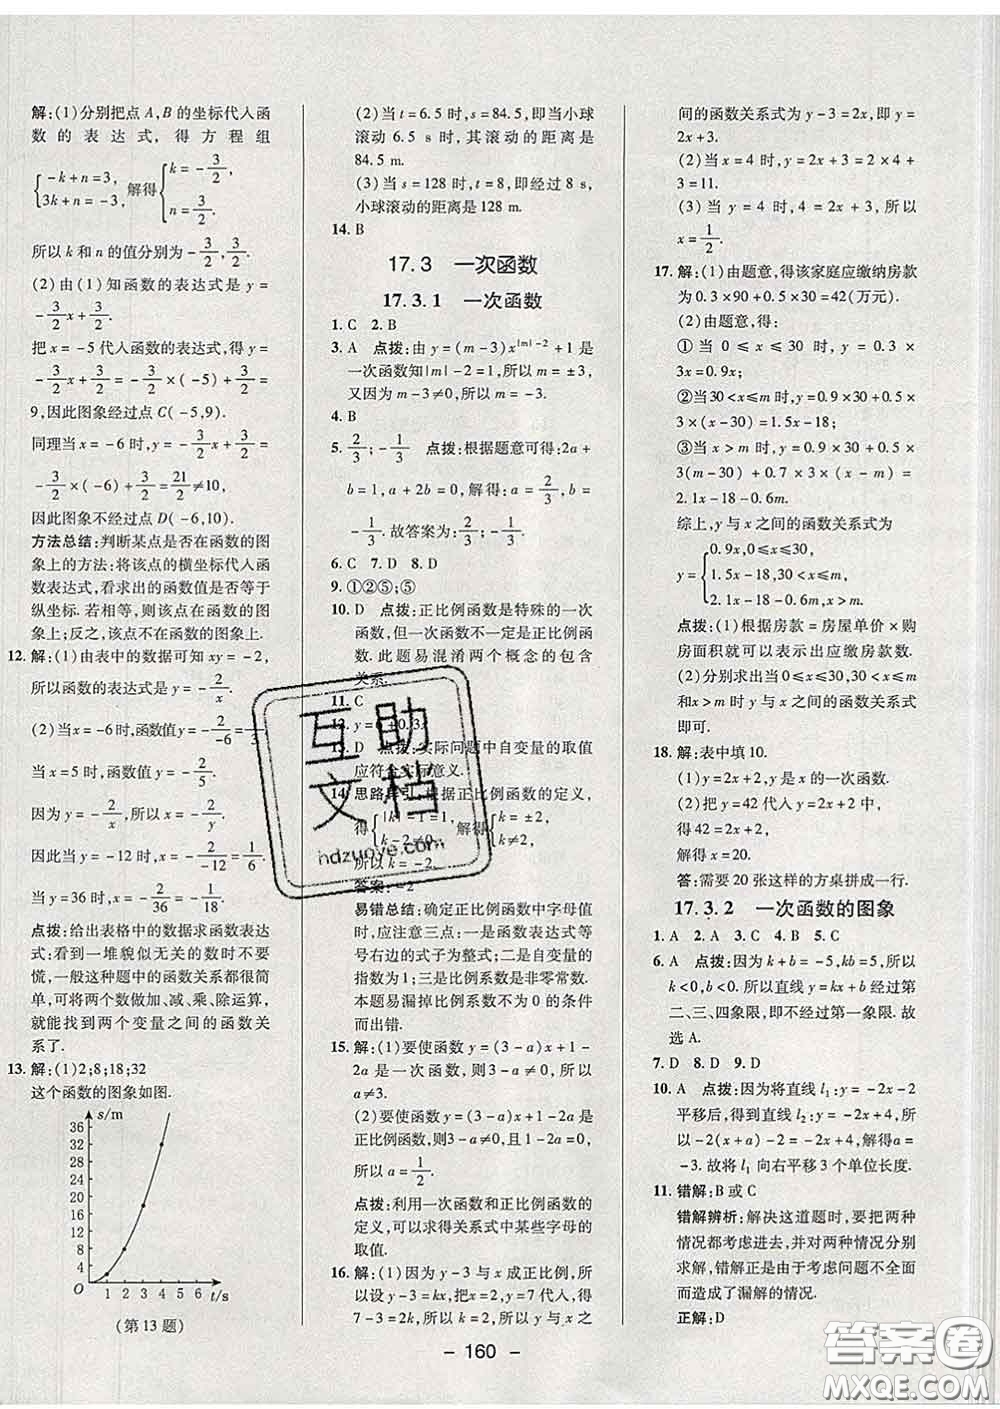 解:(1)分别把点 A,B 的坐标代入函
数的表达式,得方程组
{-k+n=3, 3k+n=-3, 解得 {k=-3/2, n=3/2.
所以 k 和 n 的值分别为 -3/2, 3/2.
(2)由(1)知函数的表达式是 y=
-3/2x+3/2.
把 x=-5 代入函数的表达式,得 y=
-3/2x+3/2=-3/2×(-5)+3/2=
9,因此图象经过点 C(-5,9).
同理当 x=-6 时,y=-3/2x+3/2=
-3/2×(-6)+3/2=21/2≠10,
因此图象不经过点 D(-6,10).
方法总结:判断某点是否在函数的图
象上的方法:将该点的横坐标代入函
数表达式,看求出的函数值是否等于
纵坐标. 若相等,则该点在函数的图
象上;反之,该点不在函数的图象上.
12. 解:(1)由表中的数据可知 xy=-2,
所以函数的表达式是 y=-2/x.
(2)当 x=-6 时,函数值 y=-2/-6=
当 x=5 时,函数值 y=-2/5.
因为 y=-2/x,所以 x=-2/y.
因此当 y=-12 时,x=-2/-12=1/6.
当 y=36 时,x=-2/36=-1/18.
点拨:给出表格中的数据求函数表达
式;看到一堆貌似无关的数时不要
慌,一般这种题中的函数关系都很简
单,可将两个数做加、减、乘、除运算,
就能找到两个变量之间的函数关
系了.
13. 解:(1)2;8;18;32
这个函数的图象如图.
s/m
36
32
28
24
20
16
12
8
4
O 1 2 3 4 5 6 t/s
(第 13 题)
(2)当 t=6.5 时,s=84.5,即当小球
滚动 6.5 s 时,其滚动的距离是
84.5 m.
(3)当 s=128 时,t=8,即经过 8 s,
小球滚动的距离是 128 m.
14. B
17.3 一次函数
17.3.1 一次函数
1. C 2. B
3. A 点拨:由 y=(m-3)x^{|m|-2}+1 是
一次函数知|m|-2=1,所以 m=±3,
又因为 m-3≠0,所以 m=-3.
4. B
5. 2/3;-1/3 点拨:根据题意可得:2a+
b=1,a+2b=0,解得:a=2/3,b=
-1/3.故答案为:2/3;-1/3.
6. C 7. D 8. D
9. ①②⑤;⑤
10. D 点拨:正比例函数是特殊的一次
函数,但一次函数不一定是正比例函
数.此题易混淆两个概念的包含
关系.
11. C
12. y=6+0.3x
13. D 点拨:实际问题中自变量的取值
应符合实际意义.
14. 思路导引:根据正比例函数的定义,
得 {|k|-1=1, k-2≠0, 解得 {k=±2, k≠2,
所以 k=-2.
答案:-2
易错总结:确定正比例函数中字母值
时,应注意三点:一是函数表达式等
号右边的式子为整式;二是自变量的
指数为 1;三是比例系数是非零常数.
本题易漏掉比例系数不为 0 的条件
而出错.
15. 解:(1)要使函数 y=(3-a)x+1-
2a 是一次函数,则3-a≠0,所以 a
≠3.
(2)要使函数 y=(3-a)x+1-2a 是
正比例函数,则3-a≠0,且 1-2a=0,
所以 a=1/2.
点拨:利用一次函数和正比例函数的
定义,可以求得关系式中某些字母的
取值.
16. 解:(1)因为 y-3 与 x 成正比例,所
以设 y-3=kx,把 x=2,y=7 代入,得
7-3=2k,所以 k=2,所以 y 与 x 之
间的函数关系式为 y-3=2x,即 y=
2x+3.
(2)当 x=4 时,y=2x+3=2×4+
3=11.
(3)当 y=4 时,4=2x+3,所以
x=1/2.
17. 解:(1)由题意,得该家庭应缴纳房款
为 0.3×90+0.5×30=42(万元).
(2)由题意,得:
①当 0≤x≤30 时,y=0.3×
3x=0.9x;
②当30<x≤m时,y=0.9×30+0.5
×3×(x-30)=1.5x-18;
③当 x>m 时,y=0.9×30+0.5×
3(m-30)+0.7×3×(x-m)=
2.1x-18-0.6m.
综上,y 与 x 之间的函数关系式为
y={0.9x,0≤x≤30, 1.5x-18,30<x≤m, 2.1x-18-0.6m,x>m.
点拨:(1)根据房款=房屋单价×购
房面积就可以表示出应缴房款.
(2)分别求出当 0≤x≤30,30<x≤m
和x>m 时 y 与 x 之间的函数关系式
即可.
18. 解:表中填 10.
(1)y=2x+2,y 是 x 的一次函数.
(2)把 y=42 代入 y=2x+2 中,
得 42=2x+2.
解得 x=20.
答:需要 20 张这样的方桌拼成一行.
17.3.2 一次函数的图象
1. A 2. A 3. C 4. B 5. C
6. A 点拨:因为 k+b=-5,kb=5,所以
k<0,b<0.所以直线 y=kx+b 经过第
二、三、四象限,即不经过第一象限.故
选 A.
7. D 8. D 9. D
10. A 点拨:因为将直线 l₁:y=-2x-2
平移后,得到直线 l₂:y=-2x+4,所
以-2(x+a)-2=-2x+4,解得a=
-3.故将 l₁ 向右平移 3 个单位长度.
11. 错解:B 或 C
错解辨析:解决这道题时,要把两种
情况都考虑进去,并对两种情况分别
求解,错解正是由于考虑问题不全面
而造成了漏解的情况.
正解:D
- 160 -
互助
文档
hdzuoye.com
答案圈
MXQE.COM